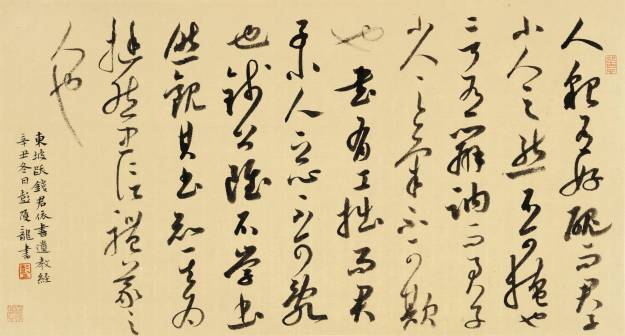 人貌有好醜而君子
小人之態不可掩也
言有辯訥而君子
小人之氣不可欺
也書有工拙而君
子小人之心不可亂
也錢公雖不學書
然觀其書知其為
挺然忠信禮義之
人也
東坡跋錢君倚書遺教經
辛丑冬日彭龍書